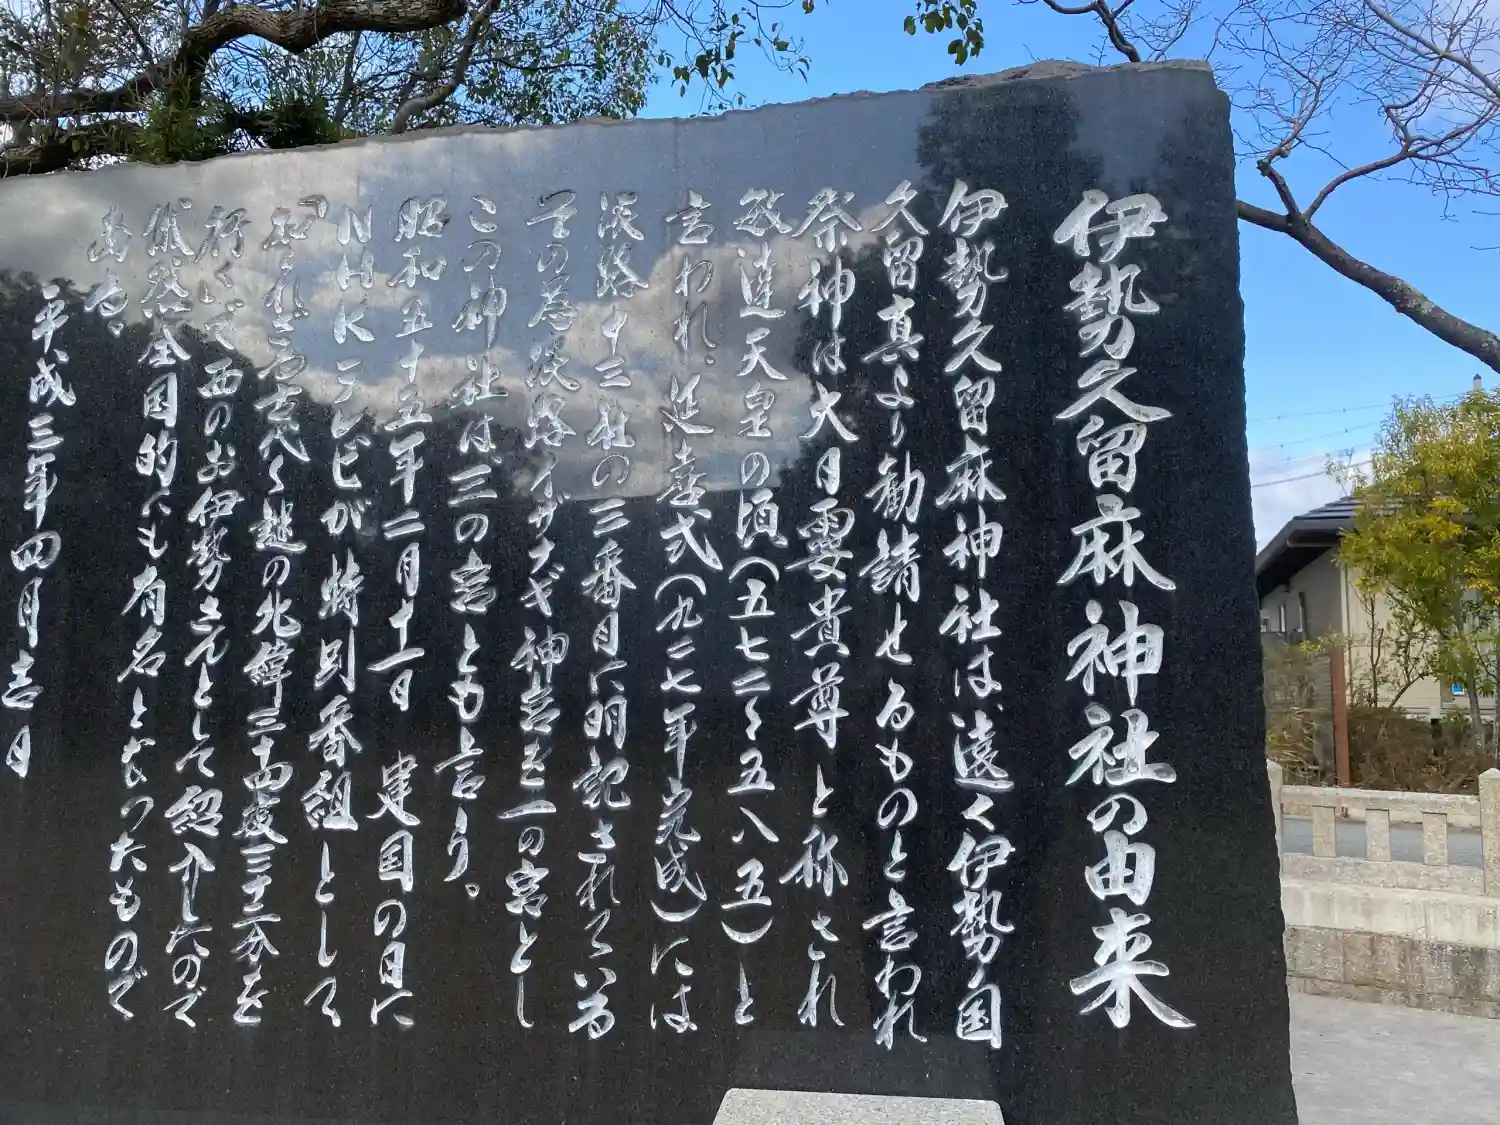 伊勢久留麻神社の由来
伊勢久留麻神社は遠く伊勢国
久留真より勧請せるものと言われ
祭神は大日孁貴尊と称され
敏達天皇の頃(五七二〜五八五)と
言われ、延喜式(九二七年完成)には
淡路十三社の三番目に明記されている
その為淡路イザナギ神宮を一の宮とし
この神社は三の宮とも言う。
昭和五十五年二月十一日 建国の日に
NHKテレビが特別番組として
「知られざる古代」の北緯三十四度三十二分を
行くで西のお伊勢さんとして紹介したので
俄然全国的にも有名となったもので
ある、
平成三年四月吉日